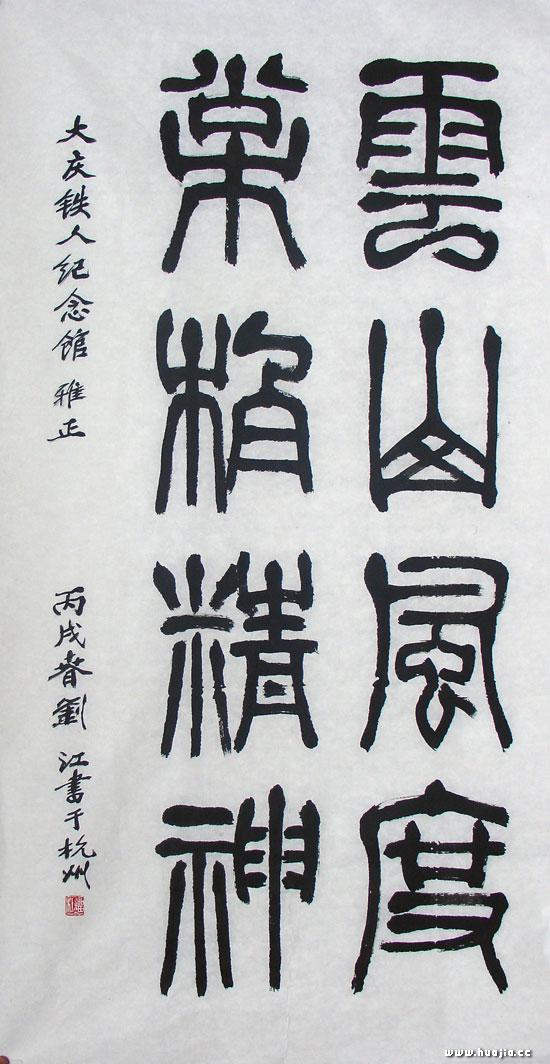 雲山風度
松柏精神
大庆铁人纪念馆 雅正
丙戌春劉江書于杭州
www.huajia.cc